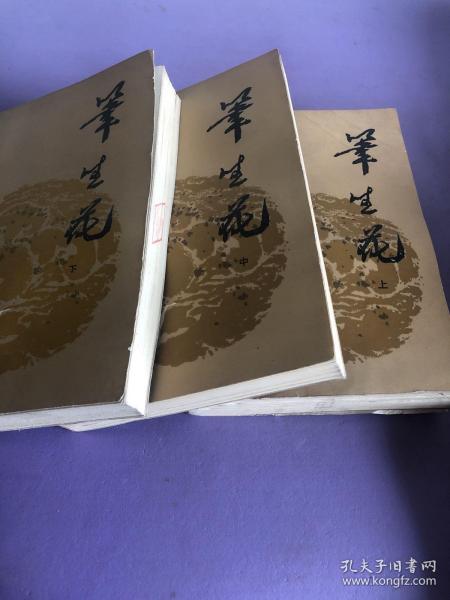 筆生花
下
筆生花
中
筆生花
上
孔夫子旧书网
www.kongfz.com